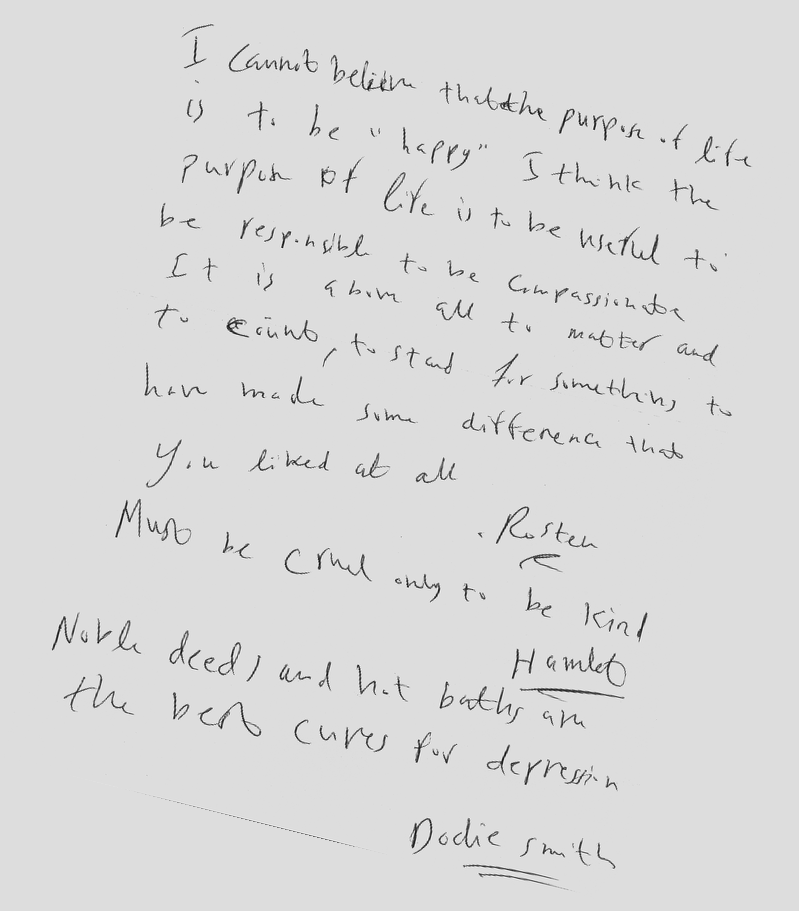 I cannot believe that the purpose of life
is to be "happy" I think the
purpose of life is to be useful to
be responsible to be compassionate
It is above all to matter and
to count, to stand for something to
have made some difference that
you liked at all
. Rosten
Must be cruel only to be kind
Hamlet
Noble deeds and hot baths are
the best cures for depression
Dodie Smith